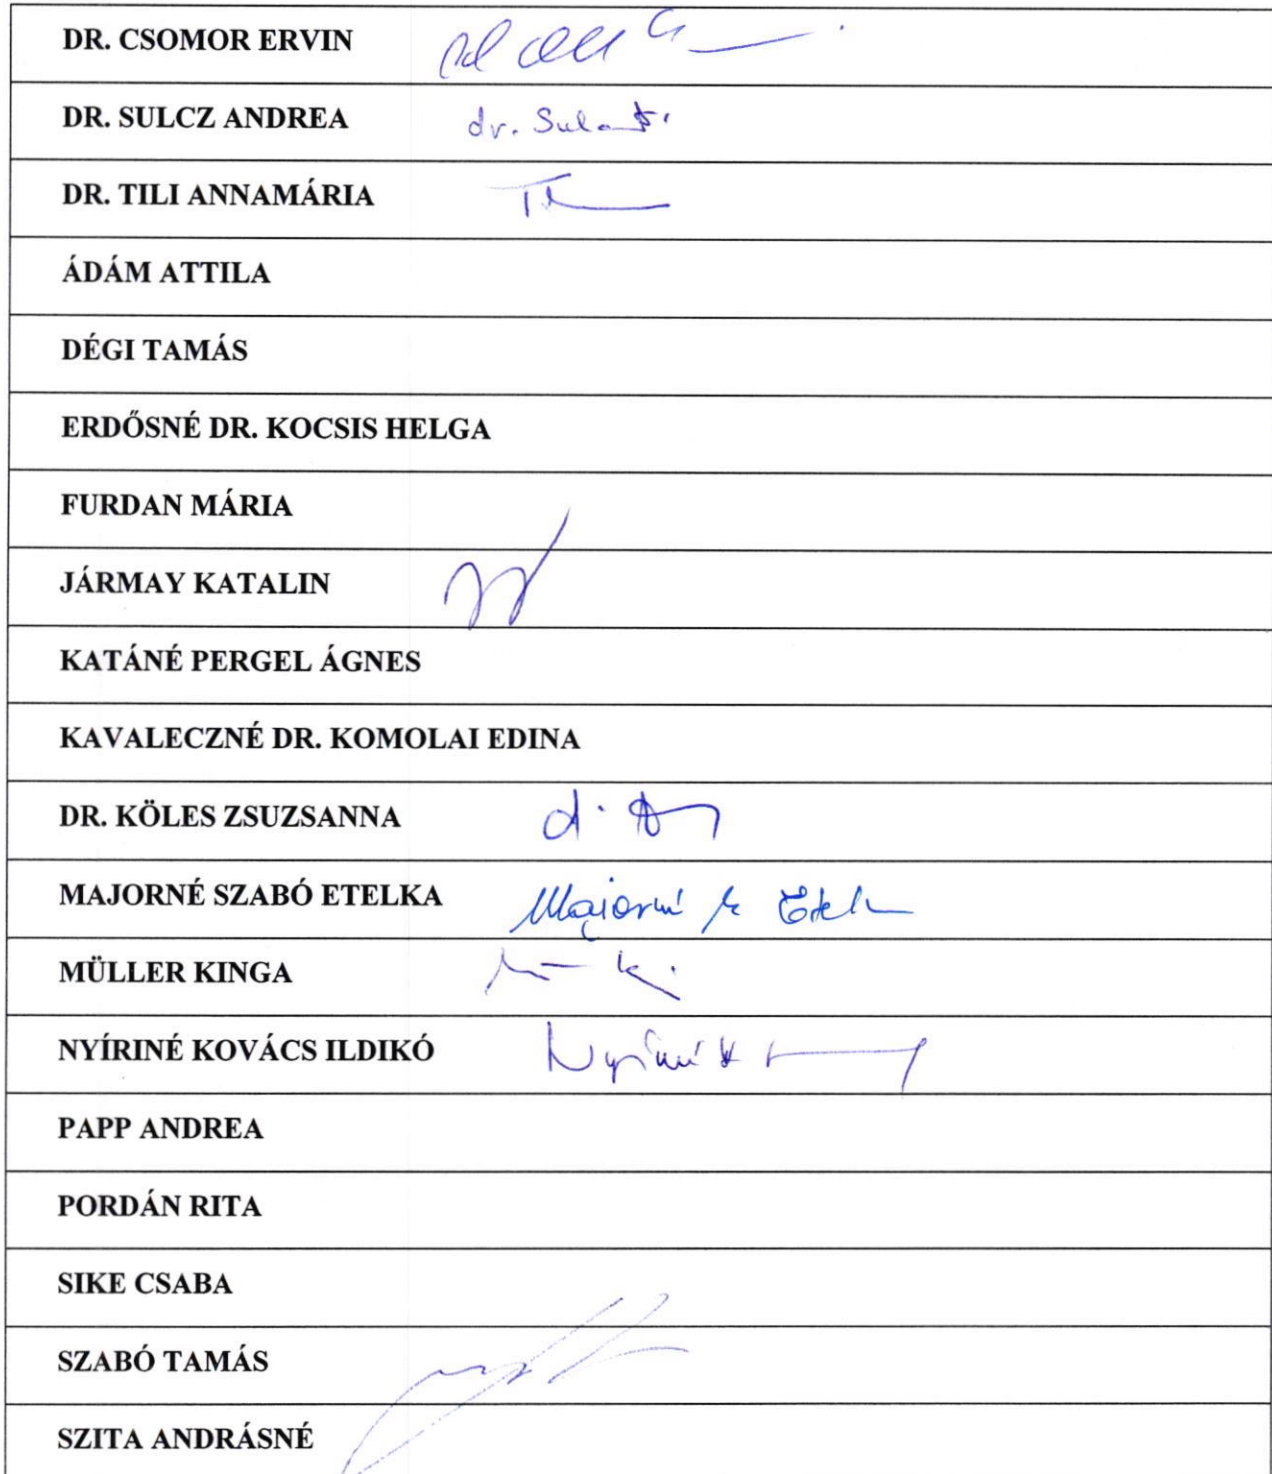 DR. CSOMOR ERVIN
DR. SULCZ ANDREA dr.
DR. TILI ANNAMÁRIA
ÁDÁM ATTILA
DÉGI TAMÁS
ERDŐSNÉ DR. KOCSIS HELGA
FURDAN MÁRIA
JÁRMAY KATALIN
KATÁNÉ PERGEL ÁGNES
KAVALECZNÉ DR. KOMOLAI EDINA
DR. KÖLES ZSUZSANNA
MAJORNÉ SZABÓ ETELKA Majorné
MÜLLER KINGA
NYÍRINÉ KOVÁCS ILDIKÓ Nyíriné
PAPP ANDREA
PORDÁN RITA
SIKE CSABA
SZABÓ TAMÁS
SZITA ANDRÁSNÉ